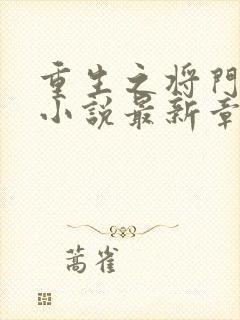 重生之将門
小说最新章
蒿雀